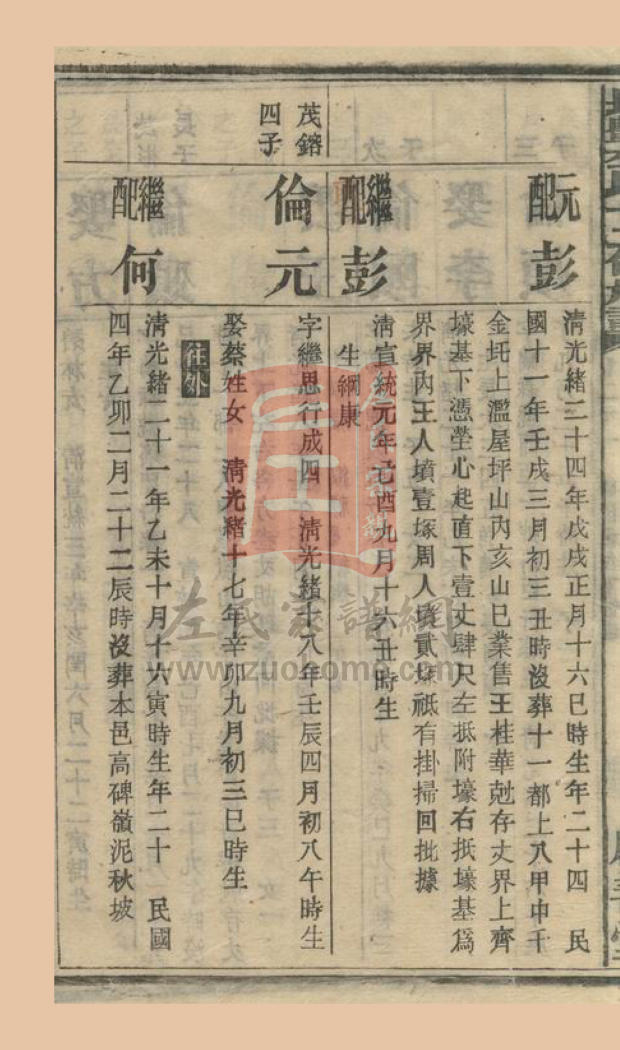 元配
彭
清光緒二十四年戊戌正月十六巳時生年二十四　民
國十一年壬戌三月初三丑時沒葬十一都上八甲中干
金圫上濫屋坪山內亥山巳業售王桂華尅存丈界上齊
壕基下憑塋心起直下壹丈肆尺左抵附壕右抵壕基爲
界界內王人墳壹塚周人墳貳塚祗有掛掃回批據
繼配
彭
清宣統元年己酉九月十六丑時生
生綱康
茂鎔
四子
倫元
字繼思行成四　清光緒十八年壬辰四月初八午時生
娶蔡姓女　清光緒十七年辛卯九月初三巳時生
往外
繼配
何
清光緒二十一年乙未十月十六寅時生年二十　民國
四年乙卯二月二十二辰時沒葬本邑高碑嶺泥秋坡
左氏家譜網
www.zuojiapu.com